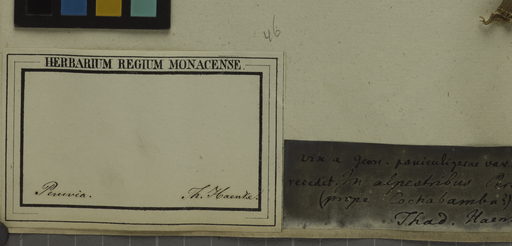 46
HERBARIUM REGIUM MONACENSE.
Peruvia.
Th. Haenke.
vix a
recedit. In alpestribus Per
(prope Cochabamba)
Thad. Haen